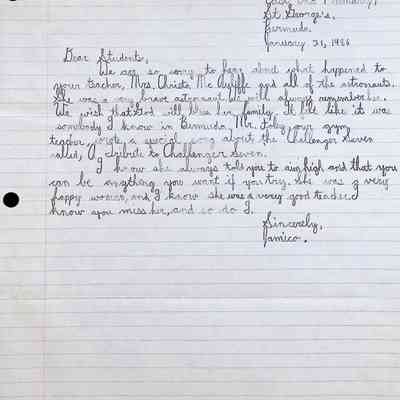 St. George's,
Bermuda.
January 31, 1986
Dear Students,
We are so sorry to hear about what happened to
your teacher, Mrs. Christa Mc Auliffe and all of the astronauts.
She was a very brave astronaut. We will always remember her.
We wish that God will bless her family. It felt like it was
somebody I know in Bermuda. Mr. Foley, our gym
teacher, wrote a special song about the Challenger Seven
called, A tribute to Challenger Seven.
I know she always told you to aim high and that you
can be anything you want if you try. She was a very
happy woman, and I know she was a very good teacher. I
know you miss her, and so do I.
Sincerely,
Jamico.